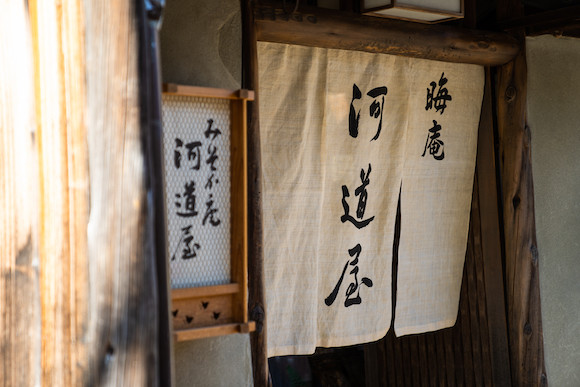 晦庵
河道屋
みそか庵
河道屋